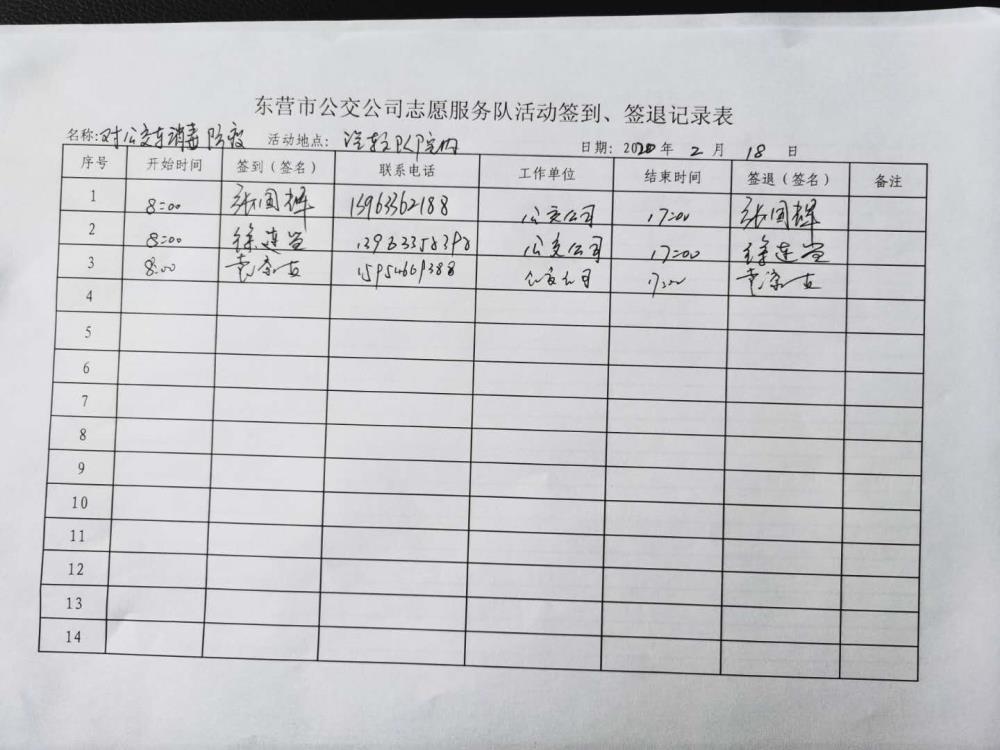 东营市公交公司志愿服务队活动签到、签退记录表
名称:对公交车消毒防疫 活动地点: 院内 日期: 2020年 2 月 18 日
序号 开始时间 签到(签名) 联系电话 工作单位 结束时间 签退(签名) 备注
1 8:00 张国辉 13963362188 公交公司 17:00 张国辉
2 8:00 徐连 公交公司 17:00 徐连
3 8:00 公交公司 17:00
4
5
6
7
8
9
10
11
12
13
14